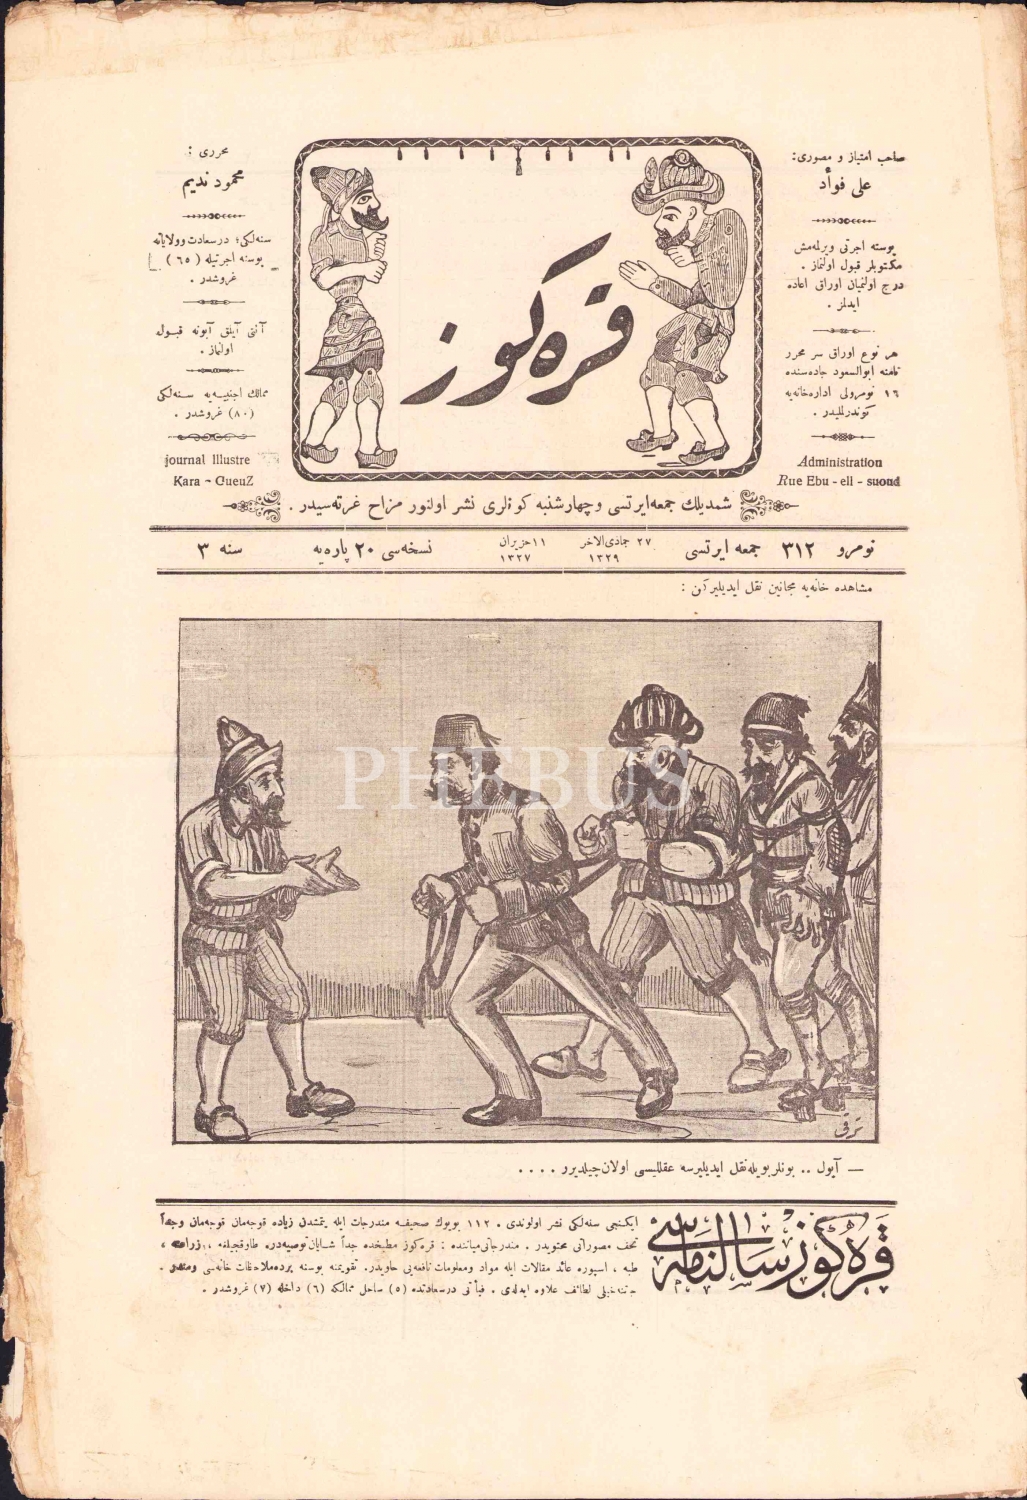 صاحب امتیاز و مصوری:
علی فوأد
پوسته اجرتی ویرلمه‌مش
مکتوبلر قبول اولنماز .
درج اولنمیان اوراق اعاده
ایدلز .
هر نوع اوراق سر محرر
نامنه ابوالسعود جاده‌سنده
۱۶ نومرولی اداره‌خانه‌یه
کوندرلملیدر .
Administration
Rue Ebu - ell - suoud
قره کوز
محرری :
محمود ندیم
سنه‌لکی؛ درسعادت وولایاته
پوسته اجرتیله ( ٦٥ )
غروشدر .
آلتی آیلق آبونه قبول
اولنماز .
ممالك اجنبیه‌یه سنه‌لکی
(۸۰) غروشدر .
journal Illustre
Kara - GueuZ
شمدیلك جمعه‌ایرتسی و چهارشنبه کونلری نشر اولنور مزاح غزته‌سیدر .
نومرو ۳۱۲ جمعه ایرتسی ۲۷ جمادی‌الاخر ۱۳۲۹ ۱۱ حزیران ۱۳۲۷ نسخه‌سی ۲۰ پاره‌یه سنه ۳
مشاهده خانه‌یه مجانین نقل ایدیلیرکن :
PHEBUS
— آیول .. بونلر بویله نقل ایدیلیرسه عقللیسی اولان چیلدیرر ....
قره کوز سالنامه‌سی
ایکنجی سنه‌لکی نشر اولوندی . ۱۱۲ بویوك صحیفه مندرجات ایله یتمشدن زیاده قوجه‌مان قوجه‌مان وجداً
تحف مصوراتی محتویدر . مندرجاتی میاننده : قره‌کوز مطبخده جداً شایان توصیه‌در. طاوقجیلغه ، زراعته ،
طبه ، اسپوره عائد مقالات ایله مواد ومعلومات نافعه‌یی حاویدر. تقویمنه پوسته پرده‌ملاحظات خانه‌سی
خیلی لطائف علاوه ایدلدی . فیأتی درسعادتده (٥) ساحل ممالکه (٦) داخله (۷) غروشدر .